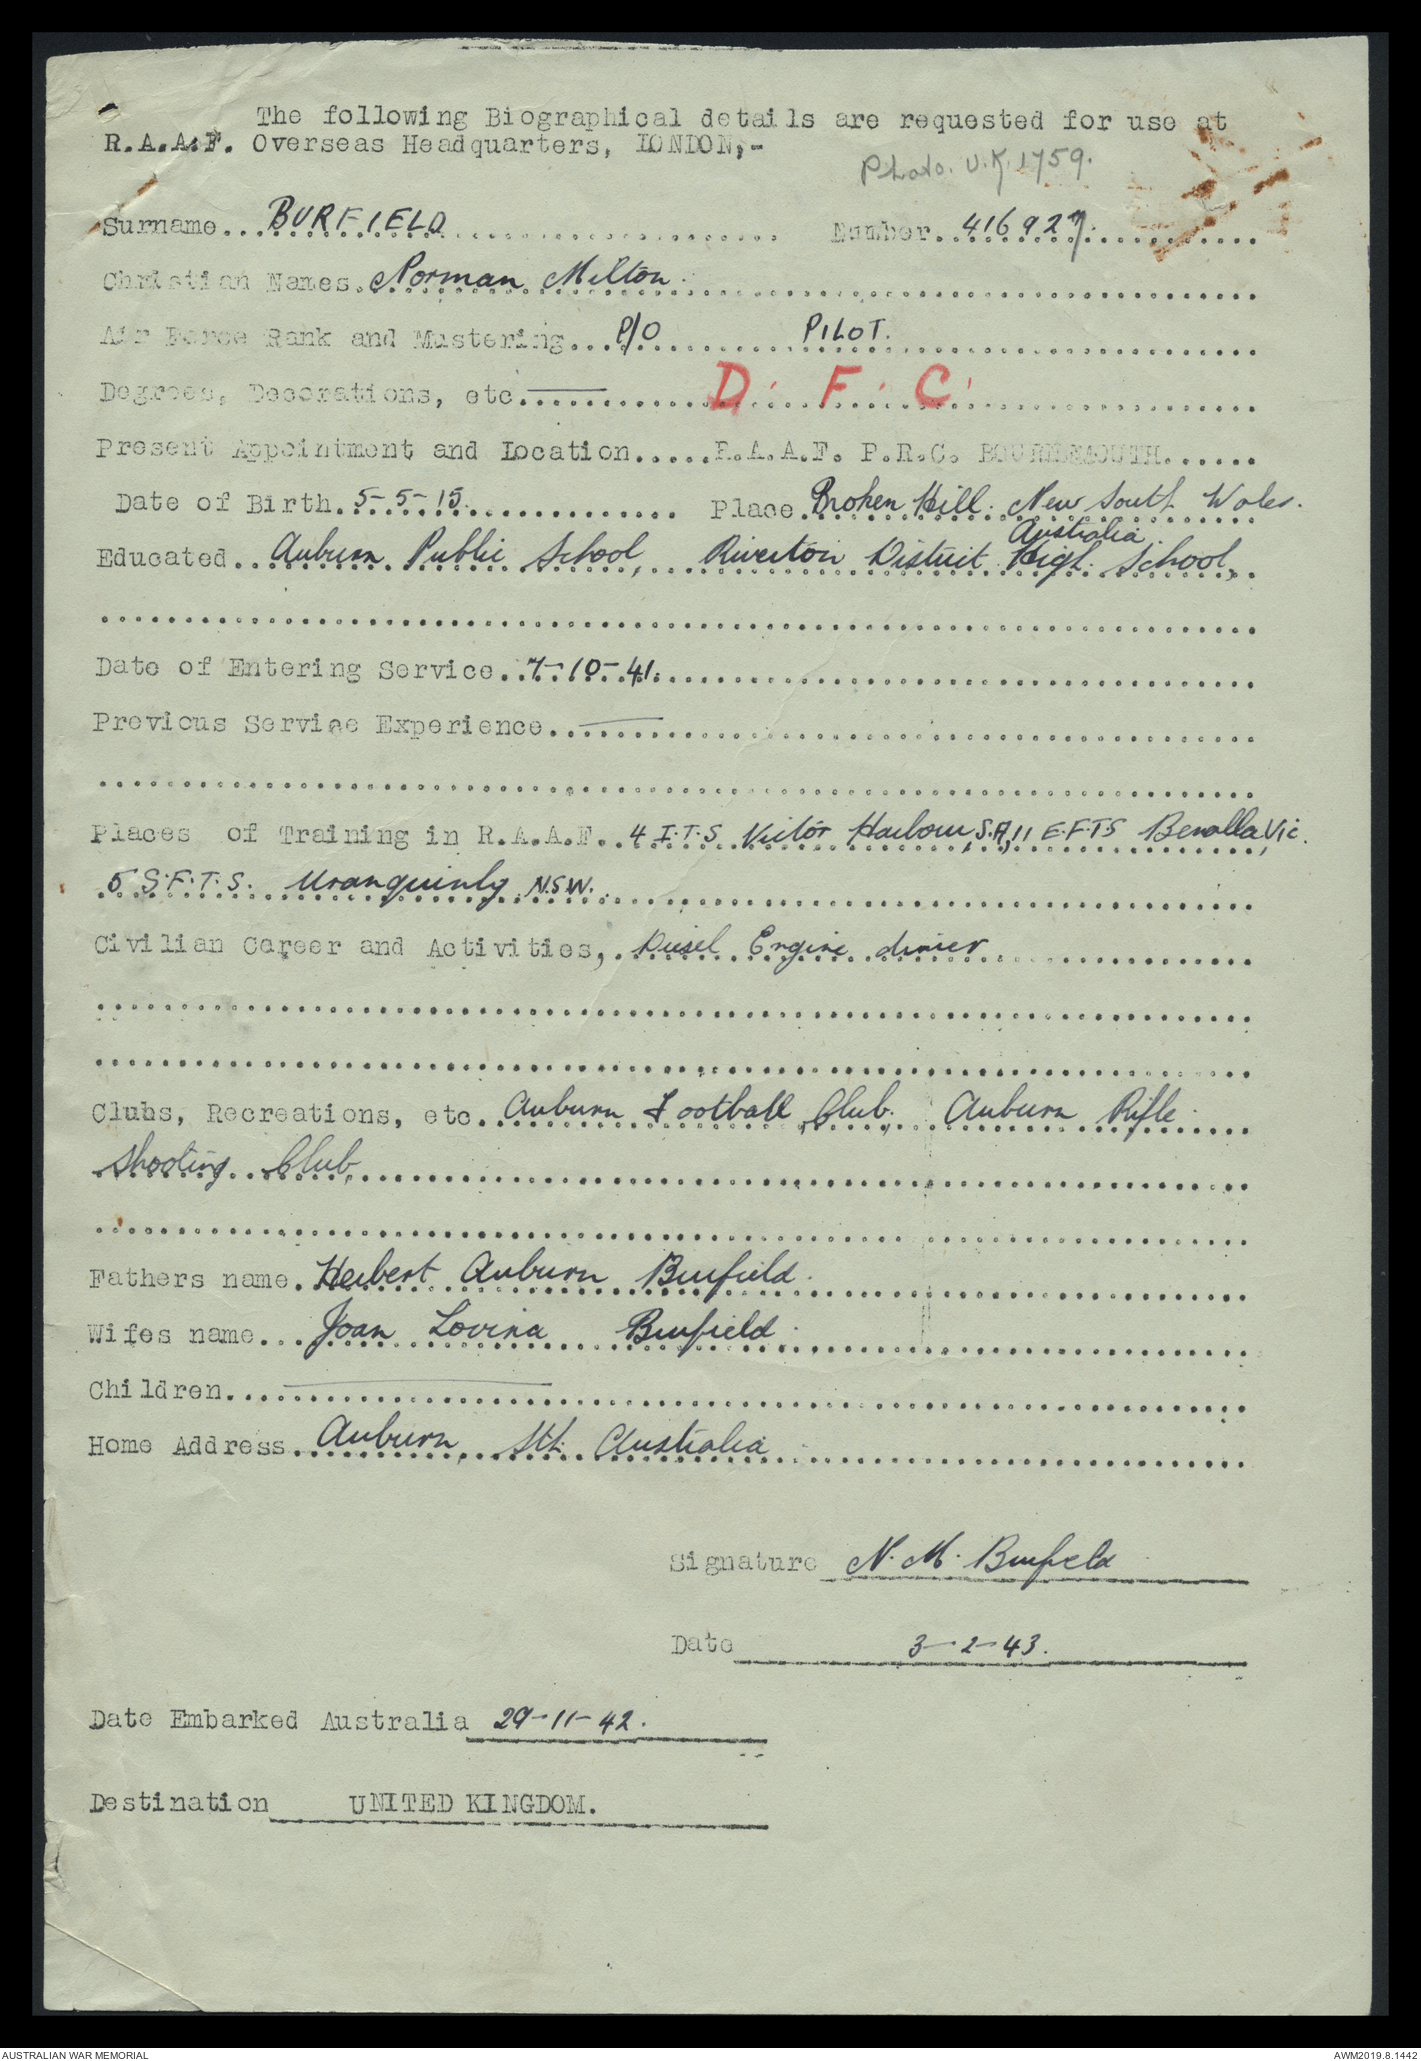 The following Biographical details are requested for use at
R.A.A.F. Overseas Headquarters, LONDON,-
Photo. U.K. 1759.
Surname... BURFIELD Number. 416927.
Christian Names. Norman Milton.
Air Force Rank and Mustering... P/O PILOT.
Degrees, Decorations, etc. —— D.F.C.
Present Appointment and Location..... R.A.A.F. P.R.C. BOURNEMOUTH......
Date of Birth. 5-5-15. Place. Broken Hill. New South Wales.
Australia
Educated.. Auburn Public School, Riverton District High School,
Date of Entering Service.. 7-10-41.
Previous Service Experience. ——
Places of Training in R.A.A.F.. 4 I.T.S Victor Harbour, S.A, 11 E.F.T.S Benalla, Vic.
5 S.F.T.S. Uranquinty N.S.W.
Civilian Career and Activities,. Diesel Engine driver
Clubs, Recreations, etc. Auburn Football Club. Auburn Rifle
Shooting Club.
Fathers name. Herbert Auburn Burfield.
Wifes name... Joan Lovina Burfield.
Children.... ——
Home Address. Auburn, Sth. Australia
Signature N. M. Burfield
Date 3-2-43.
Date Embarked Australia 29-11-42.
Destination UNITED KINGDOM.
AUSTRALIAN WAR MEMORIAL AWM2019.8.1442